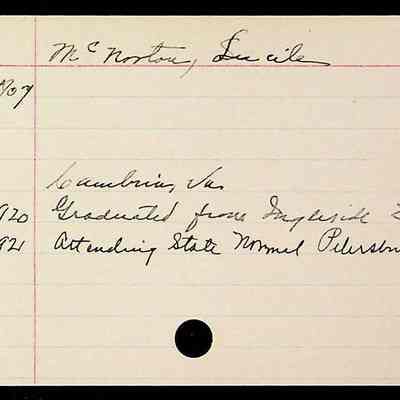 McNorton, Lucile
Cambria, Va.
920 Graduated from Ingleside
921 Attending State Normal Petersbu